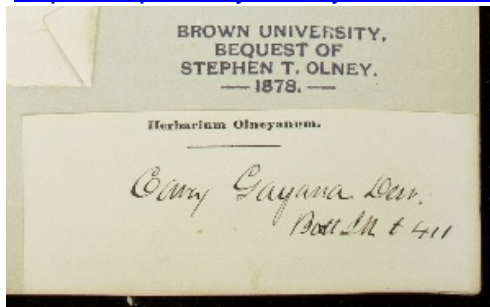 BROWN UNIVERSITY,
BEQUEST OF
STEPHEN T. OLNEY.
— 1878. —
Herbarium Olneyanum.
Carex Gayana Desv.
Bott 411